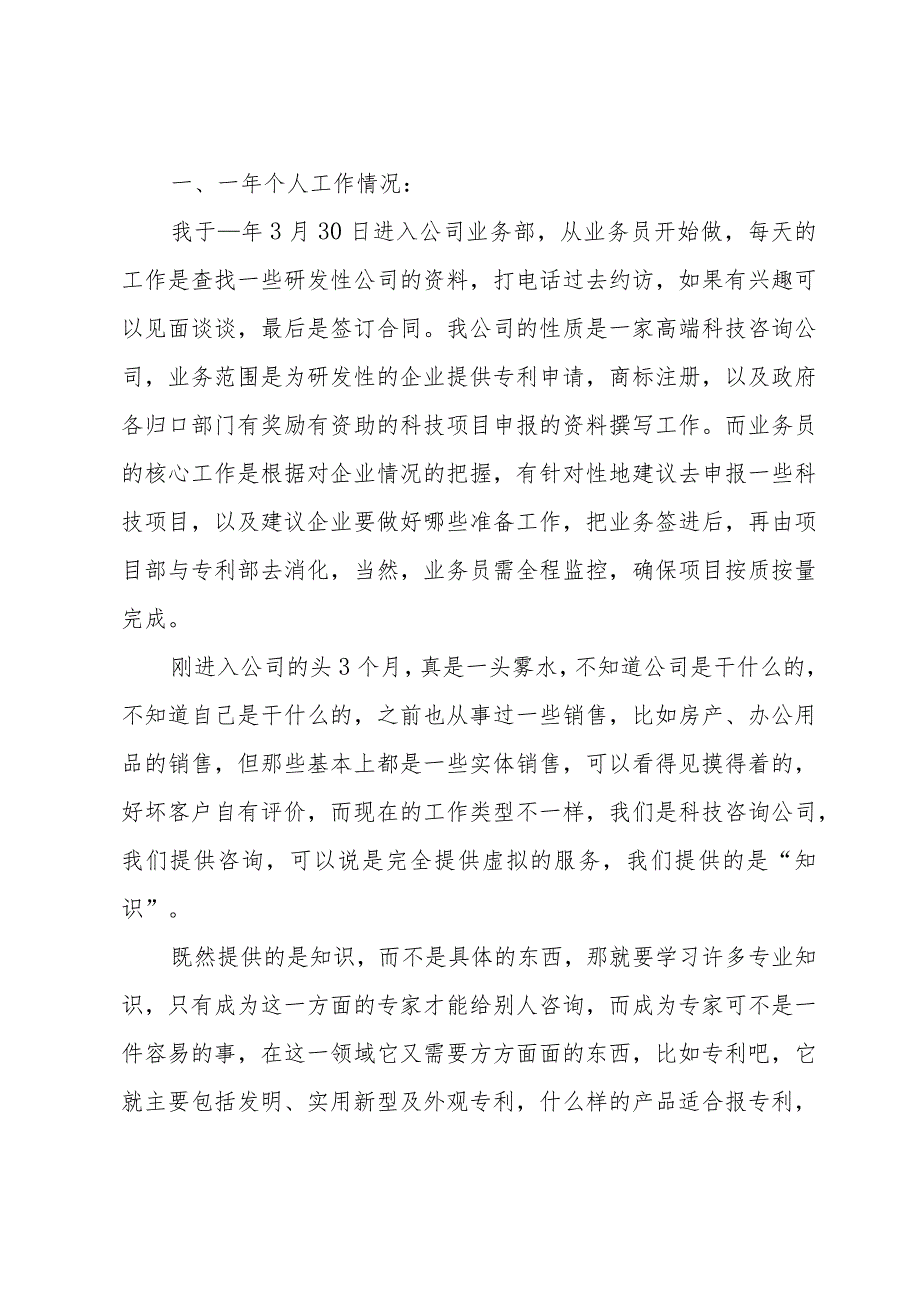 一、一年个人工作情况：
我于—年 3 月 30 日进入公司业务部，从业务员开始做，每天的
工作是查找一些研发性公司的资料，打电话过去约访，如果有兴趣可
以见面谈谈，最后是签订合同。我公司的性质是一家高端科技咨询公
司，业务范围是为研发性的企业提供专利申请，商标注册，以及政府
各归口部门有奖励有资助的科技项目申报的资料撰写工作。而业务员
的核心工作是根据对企业情况的把握，有针对性地建议去申报一些科
技项目，以及建议企业要做好哪些准备工作，把业务签进后，再由项
目部与专利部去消化，当然，业务员需全程监控，确保项目按质按量
完成。
刚进入公司的头 3 个月，真是一头雾水，不知道公司是干什么的，
不知道自己是干什么的，之前也从事过一些销售，比如房产、办公用
品的销售，但那些基本上都是一些实体销售，可以看得见摸得着的，
好坏客户自有评价，而现在的工作类型不一样，我们是科技咨询公司，
我们提供咨询，可以说是完全提供虚拟的服务，我们提供的是“知
识”。
既然提供的是知识，而不是具体的东西，那就要学习许多专业知
识，只有成为这一方面的专家才能给别人咨询，而成为专家可不是一
件容易的事，在这一领域它又需要方方面面的东西，比如专利吧，它
就主要包括发明、实用新型及外观专利，什么样的产品适合报专利，